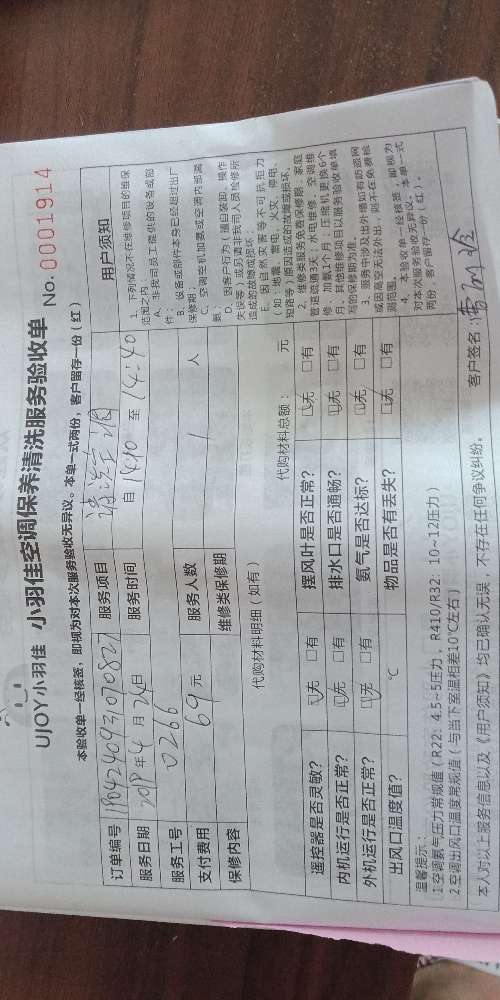 UJOY小羽佳 小羽佳空调保养清洗服务验收单
No: 0001914
本验收单一经核签，即视为对本次服务验收无异议。本单一式两份，客户留存一份（红）
订单编号 服务项目 清洗空调
服务日期 年4月24日 服务时间 自14:10至14:40
服务工号 0266
支付费用 69元 服务人数 1 人
保修内容 维修类保修期
用户须知
1、下列情况不在维修项目的维保
范围之内：
A、非我司员工提供的设备或部
件；
B、设备或部件本身已经超过出厂
保修期；
C、空调空机加氨或空调内部漏
氨；
D、因客户行为（擅自装卸、操作
失误等）或另请非我司人员检修所
造成的故障或损坏。
E、因自然灾害等不可抗拒力
（如：地震、雷电、火灾、停电、
短路等）原因造成的故障或损坏。
2、维修类服务免费保修期：家庭
管道疏通3天；水电维修、空调维
修、加氨1个月；压缩机更换6个
月。其他维修项目以服务验收单填
写的保修期为准。
4、本验收单一经核签，即视为
对本次服务验收无异议；本单一式
两份，客户留存一份（红）。
代购材料明细（如有） 代购材料总额： 元
遥控器是否灵敏？ □无 □有 摆风叶是否正常？ □无 □有
内机运行是否正常？ □无 □有 排水口是否通畅？ □无 □有
外机运行是否正常？ □无 □有 氨气是否达标？ □无 □有
出风口温度值？ ℃ 物品是否有丢失？ □无 □有
温馨提示：
1.空调氨气压力常规值（R22: 4.5~5压力、R410/R32: 10~12压力）
2.空调出风口温度常规值（与当下室温相差10℃左右）
本人对以上服务信息以及《用户须知》均已确认无误，不存在任何争议纠纷。
客户签名：